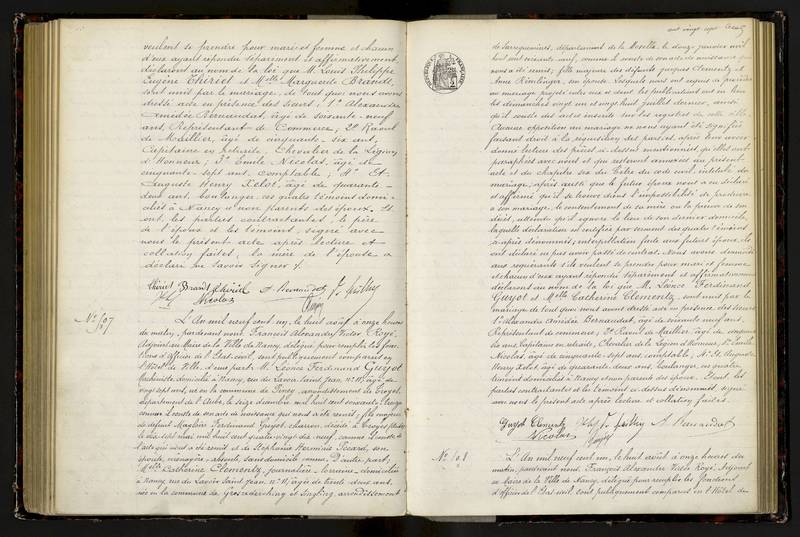 veulent se prendre pour mari et femme et chacun
d'eux ayant répondu séparément et affirmativement,
déclarons au nom de la loi que M. Louis Philippe
Eugène Thiriet et Melle Marguerite Brandt
sont unis par le mariage, de tout quoi nous avons
dressé acte en présence des sieurs: 1° Alexandre
Amédée Bernaudat, âgé de soixante-neuf
ans, Représentant de Commerce, 2° Raoul
de Mallier, âgé de cinquante-six ans,
Capitaine en retraite, Chevalier de la Légion
d'Honneur; 3° Emile Nicolas, âgé de
cinquante-sept ans, comptable; 4° Et
Auguste Henry Xélot, âgé de quarante-
deux ans, boulanger, ces quatre témoins domi-
ciliés à Nancy et non parents des époux. Et
ont, les parties contractantes, le père
de l'époux et les témoins, signé avec
nous le présent acte après lecture et
collation faites; la mère de l'épouse a
déclaré ne savoir signer.
Thiriet Brandt Thiriet
Nicolas
L'An mil neuf cent un, le huit août, à onze heures
du matin, pardevant nous, François Alexandre Victor Royé,
Adjoint au Maire de la Ville de Nancy, délégué pour remplir les fonc-
tions d'officier de l'Etat-civil, sont publiquement comparus en
l'Hôtel de Ville, d'une part: M. Léonce Ferdinand Guyot
Machiniste, domicilié à Nancy, rue du Lavoir Saint Jean, n° 11, âgé de
vingt sept ans, né en la commune de Torcy, arrondissement de Troyes,
département de l'Aube, le seize décembre mil huit cent soixante treize
comme le constate son acte de naissance qui nous a été remis, fils majeur
de défunt Magloire Ferdinand Guyot, charron, décédé à Troyes (Aube)
le dix sept mai mil huit cent quatre vingt dix neuf, comme le constate
l'acte qui nous a été remis et de Stéphanie Hermine Picard, son
épouse, ménagère, absente, sans domicile connu. D'autre part:
Melle Catherine Clementz, journalière, lorraine, domiciliée
à Nancy, rue du Lavoir Saint Jean, n° 11, âgée de trente deux ans,
née en la commune de Grosrederching et Singling, arrondissement
de Sarreguemines, département de la Moselle, le douze janvier mil
huit cent soixante neuf, comme le constate son acte de naissance qui
nous a été remis; fille majeure des défunts Jacques Clementz et
Anne Rimlinger, son épouse. Lesquels nous ont requis de procéder
au mariage projeté entre eux et dont les publications ont eu lieu
les dimanches vingt un et vingt huit juillet dernier, ainsi
qu'il résulte des actes inscrits sur les registres de cette ville.
Aucune opposition au mariage ne nous ayant été signifiée
faisant droit à la réquisition des parties, après leur avoir
donné lecture des pièces ci-dessus mentionnées, qu'elles ont
paraphées avec nous et qui resteront annexées au présent
acte et du chapitre six du titre du code civil, intitulé du
mariage, après aussi que le futur époux nous a eu déclaré
et affirmé qu'il se trouve dans l'impossibilité de produire
à son mariage, le consentement de sa mère ou la preuve de son
décès, attendu qu'il ignore le lieu de son dernier domicile,
laquelle déclaration est certifiée par serment des quatre témoins
ci-après dénommés; interpellation faite aux futurs époux, ils
ont déclaré ne pas avoir passé de contrat. Nous avons demandé
aux requérants s'ils veulent se prendre pour mari et femme,
et chacun d'eux ayant répondu séparément et affirmativement
déclarons au nom de la loi que M. Léonce Ferdinand
Guyot et Melle Catherine Clementz, sont unis par le
mariage, de tout quoi nous avons dressé acte en présence des sieurs
1° Alexandre Amédée Bernaudat, âgé de soixante neuf ans,
Représentant de commerce; 2° Raoul de Mallier, âgé de cinquante
six ans, Capitaine en retraite, Chevalier de la Légion d'Honneur, 3° Emile
Nicolas, âgé de cinquante-sept ans, comptable; 4° Et Auguste
Henry Xélot, âgé de quarante deux ans, boulanger, ces quatre
témoins domiciliés à Nancy et non parents des époux. Et ont les
parties contractantes et les témoins ci-dessus dénommés, signé
avec nous le présent acte après lecture et collation faites.
Guyot Clementz
Nicolas
L'An mil neuf cent un, le huit août à onze heures du
matin, pardevant nous, François Alexandre Victor Royé, Adjoint
au Maire de la Ville de Nancy, délégué pour remplir les fonctions
d'officier de l'Etat-civil, sont publiquement comparus en l'Hôtel de